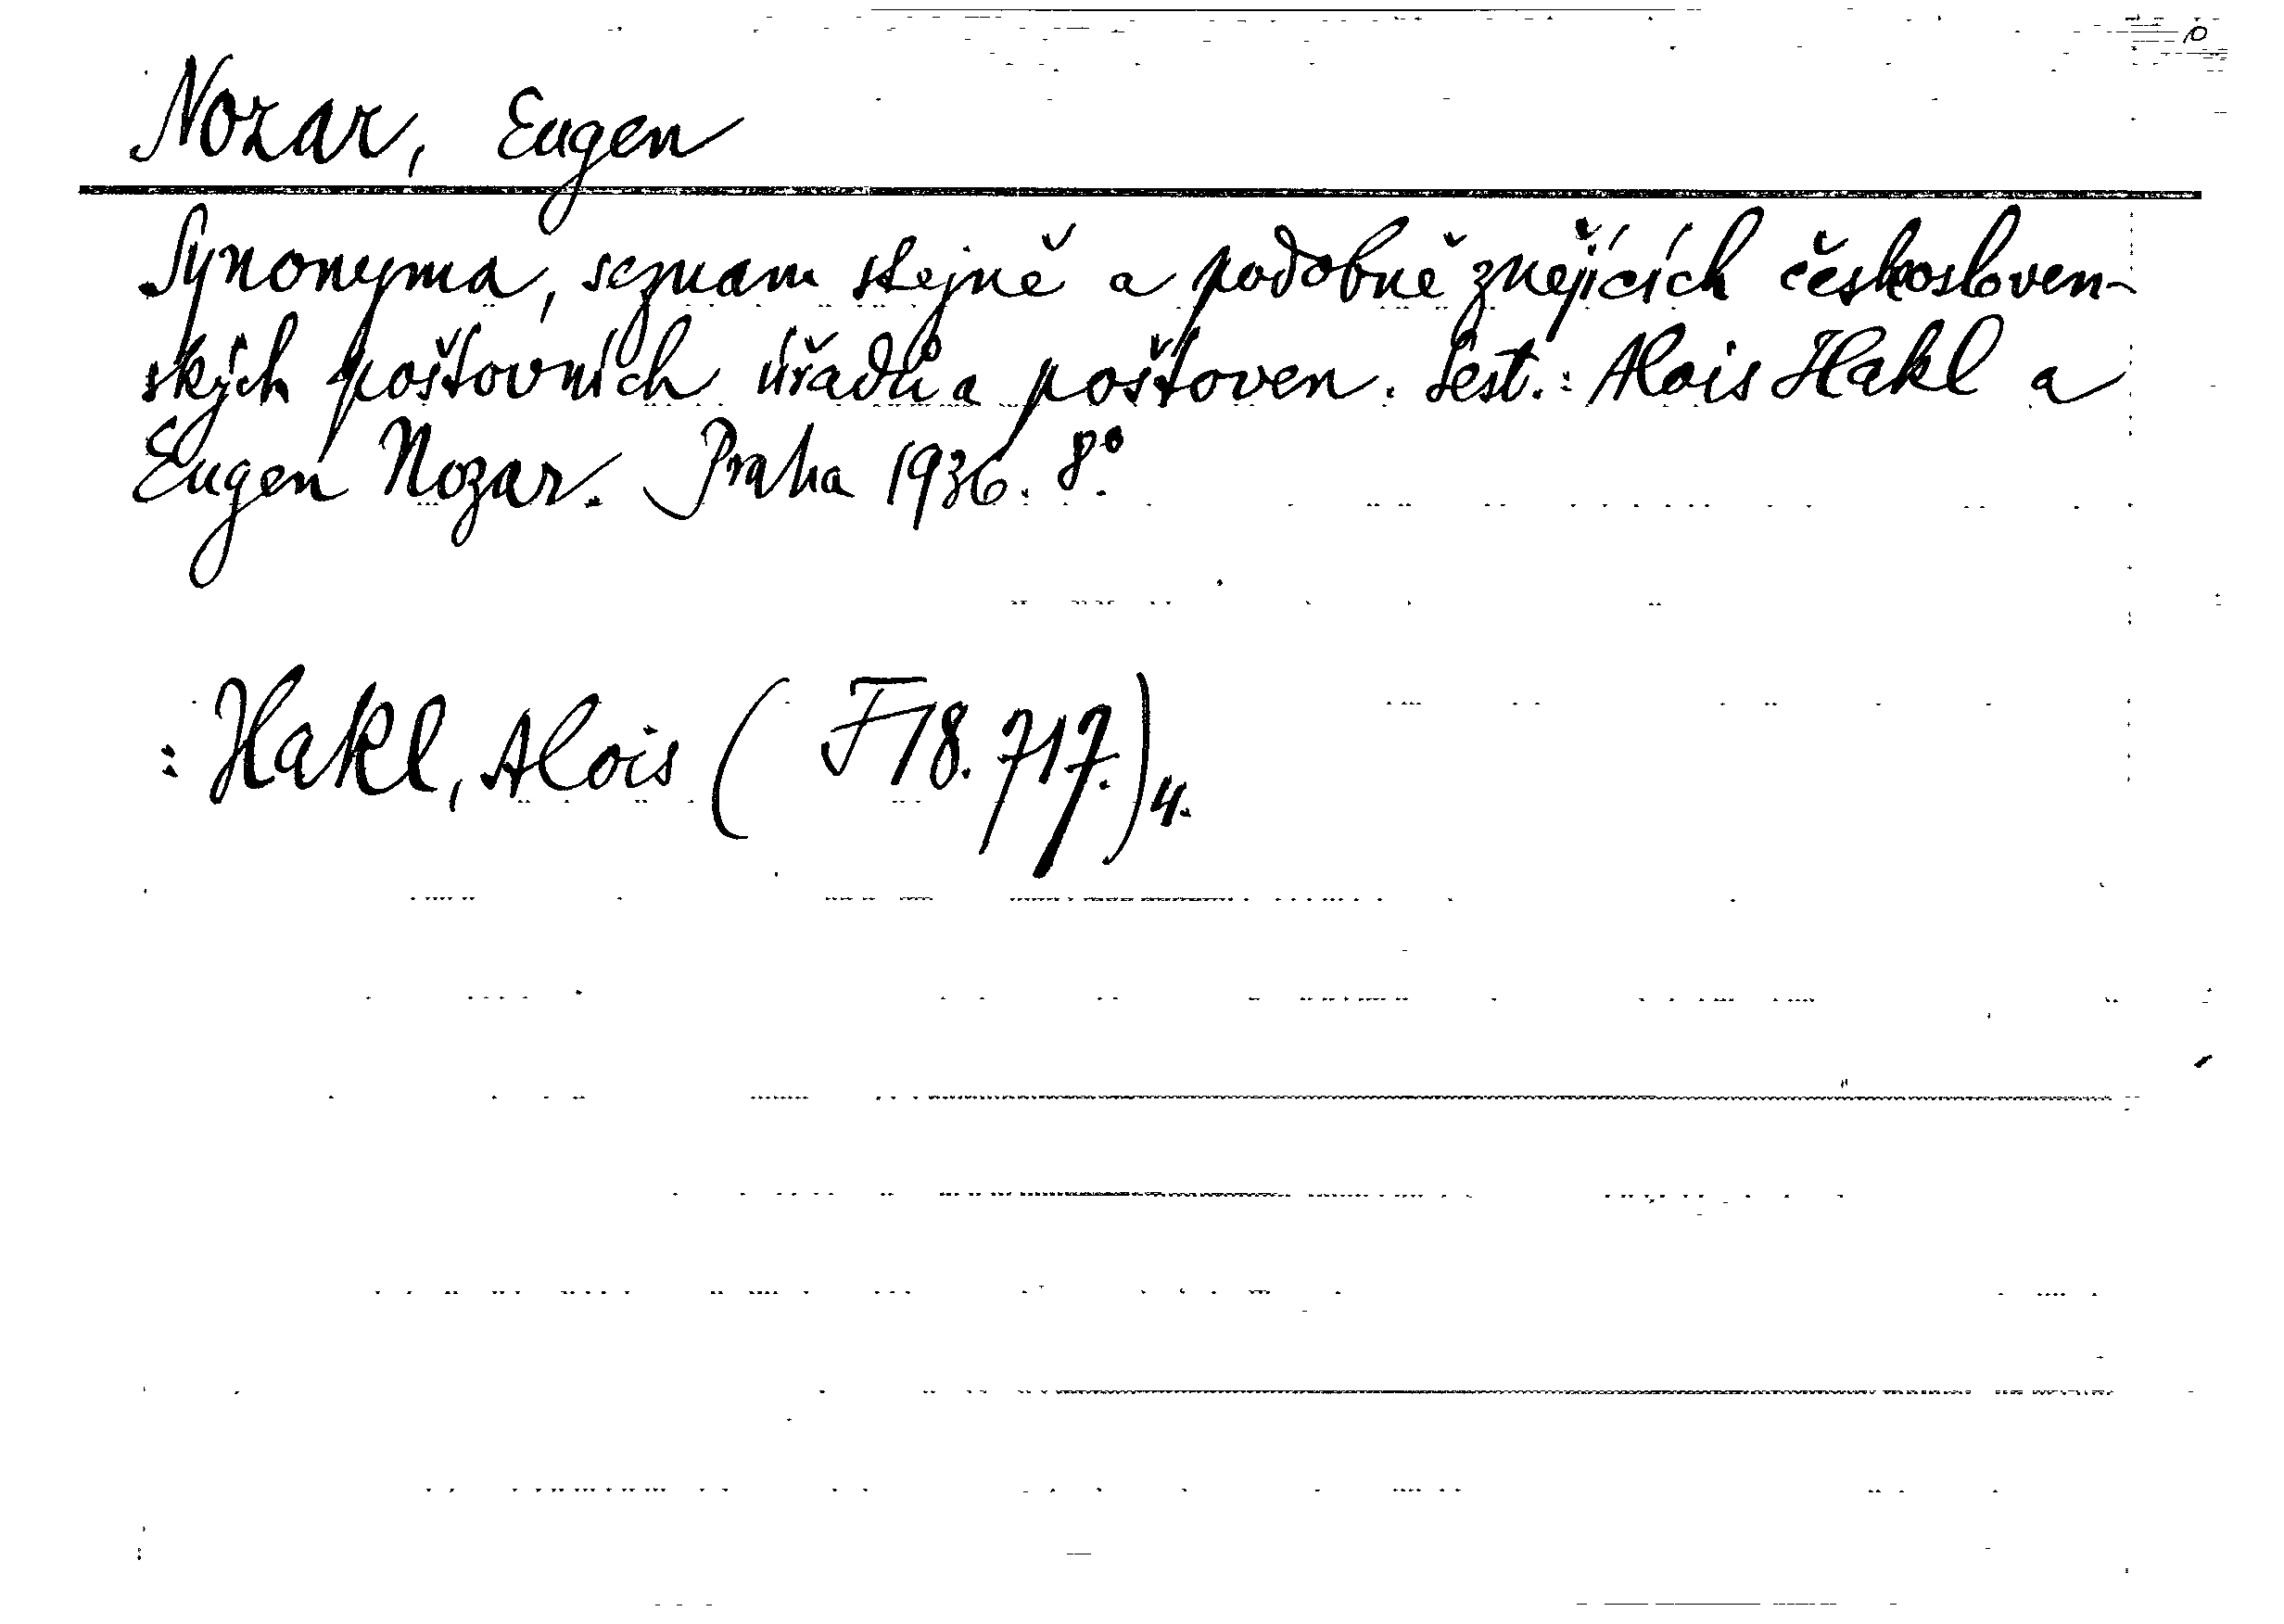 Nozar, Eugen
Synonyma, seznam stejně a podobně znějících českosloven-
ských poštovních úřadů a poštoven. Sest.: Alois Hakl a
Eugen Nozar. Praha 1936. 8°.
: Hakl, Alois ( F 18.717.) 4.